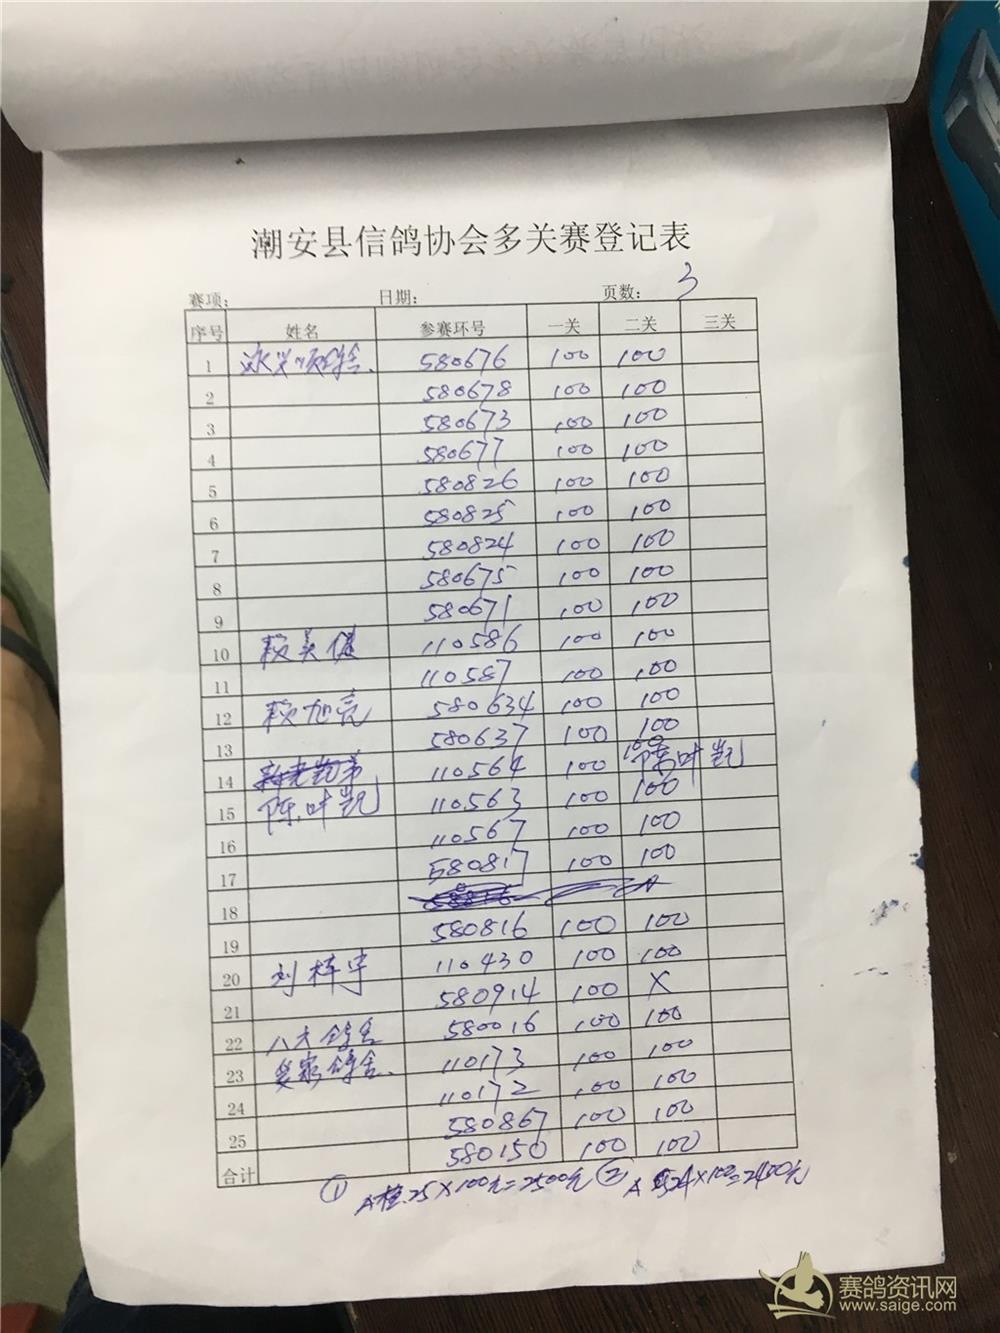 潮安县信鸽协会多关赛登记表
赛项: 日期: 页数: 3
序号 姓名 参赛环号 一关 二关 三关
1 580676 100 100
2 580678 100 100
3 580673 100 100
4 580677 100 100
5 580826 100 100
6 580825 100 100
7 580824 100 100
8 580675 100 100
9 580671 100 100
10 赖美健 110586 100 100
11 110587 100 100
12 赖旭亮 580634 100 100
13 580637 100 100
14 110564 100 100 陈叶凯
15 陈叶凯 110563 100 100
16 110567 100 100
17 580817 100 100
18
19 580816 100 100
20 刘梓宇 110430 100 100
21 580914 100 X
22 八方鸽舍 580016 100 100
23 鸽舍 110173 100 100
24 110172 100 100
25 580867 100 100
合计 580150 100 100
① A档.25×100元=2500元 ② A 24×100=2400元
赛鸽资讯网
www.saige.com